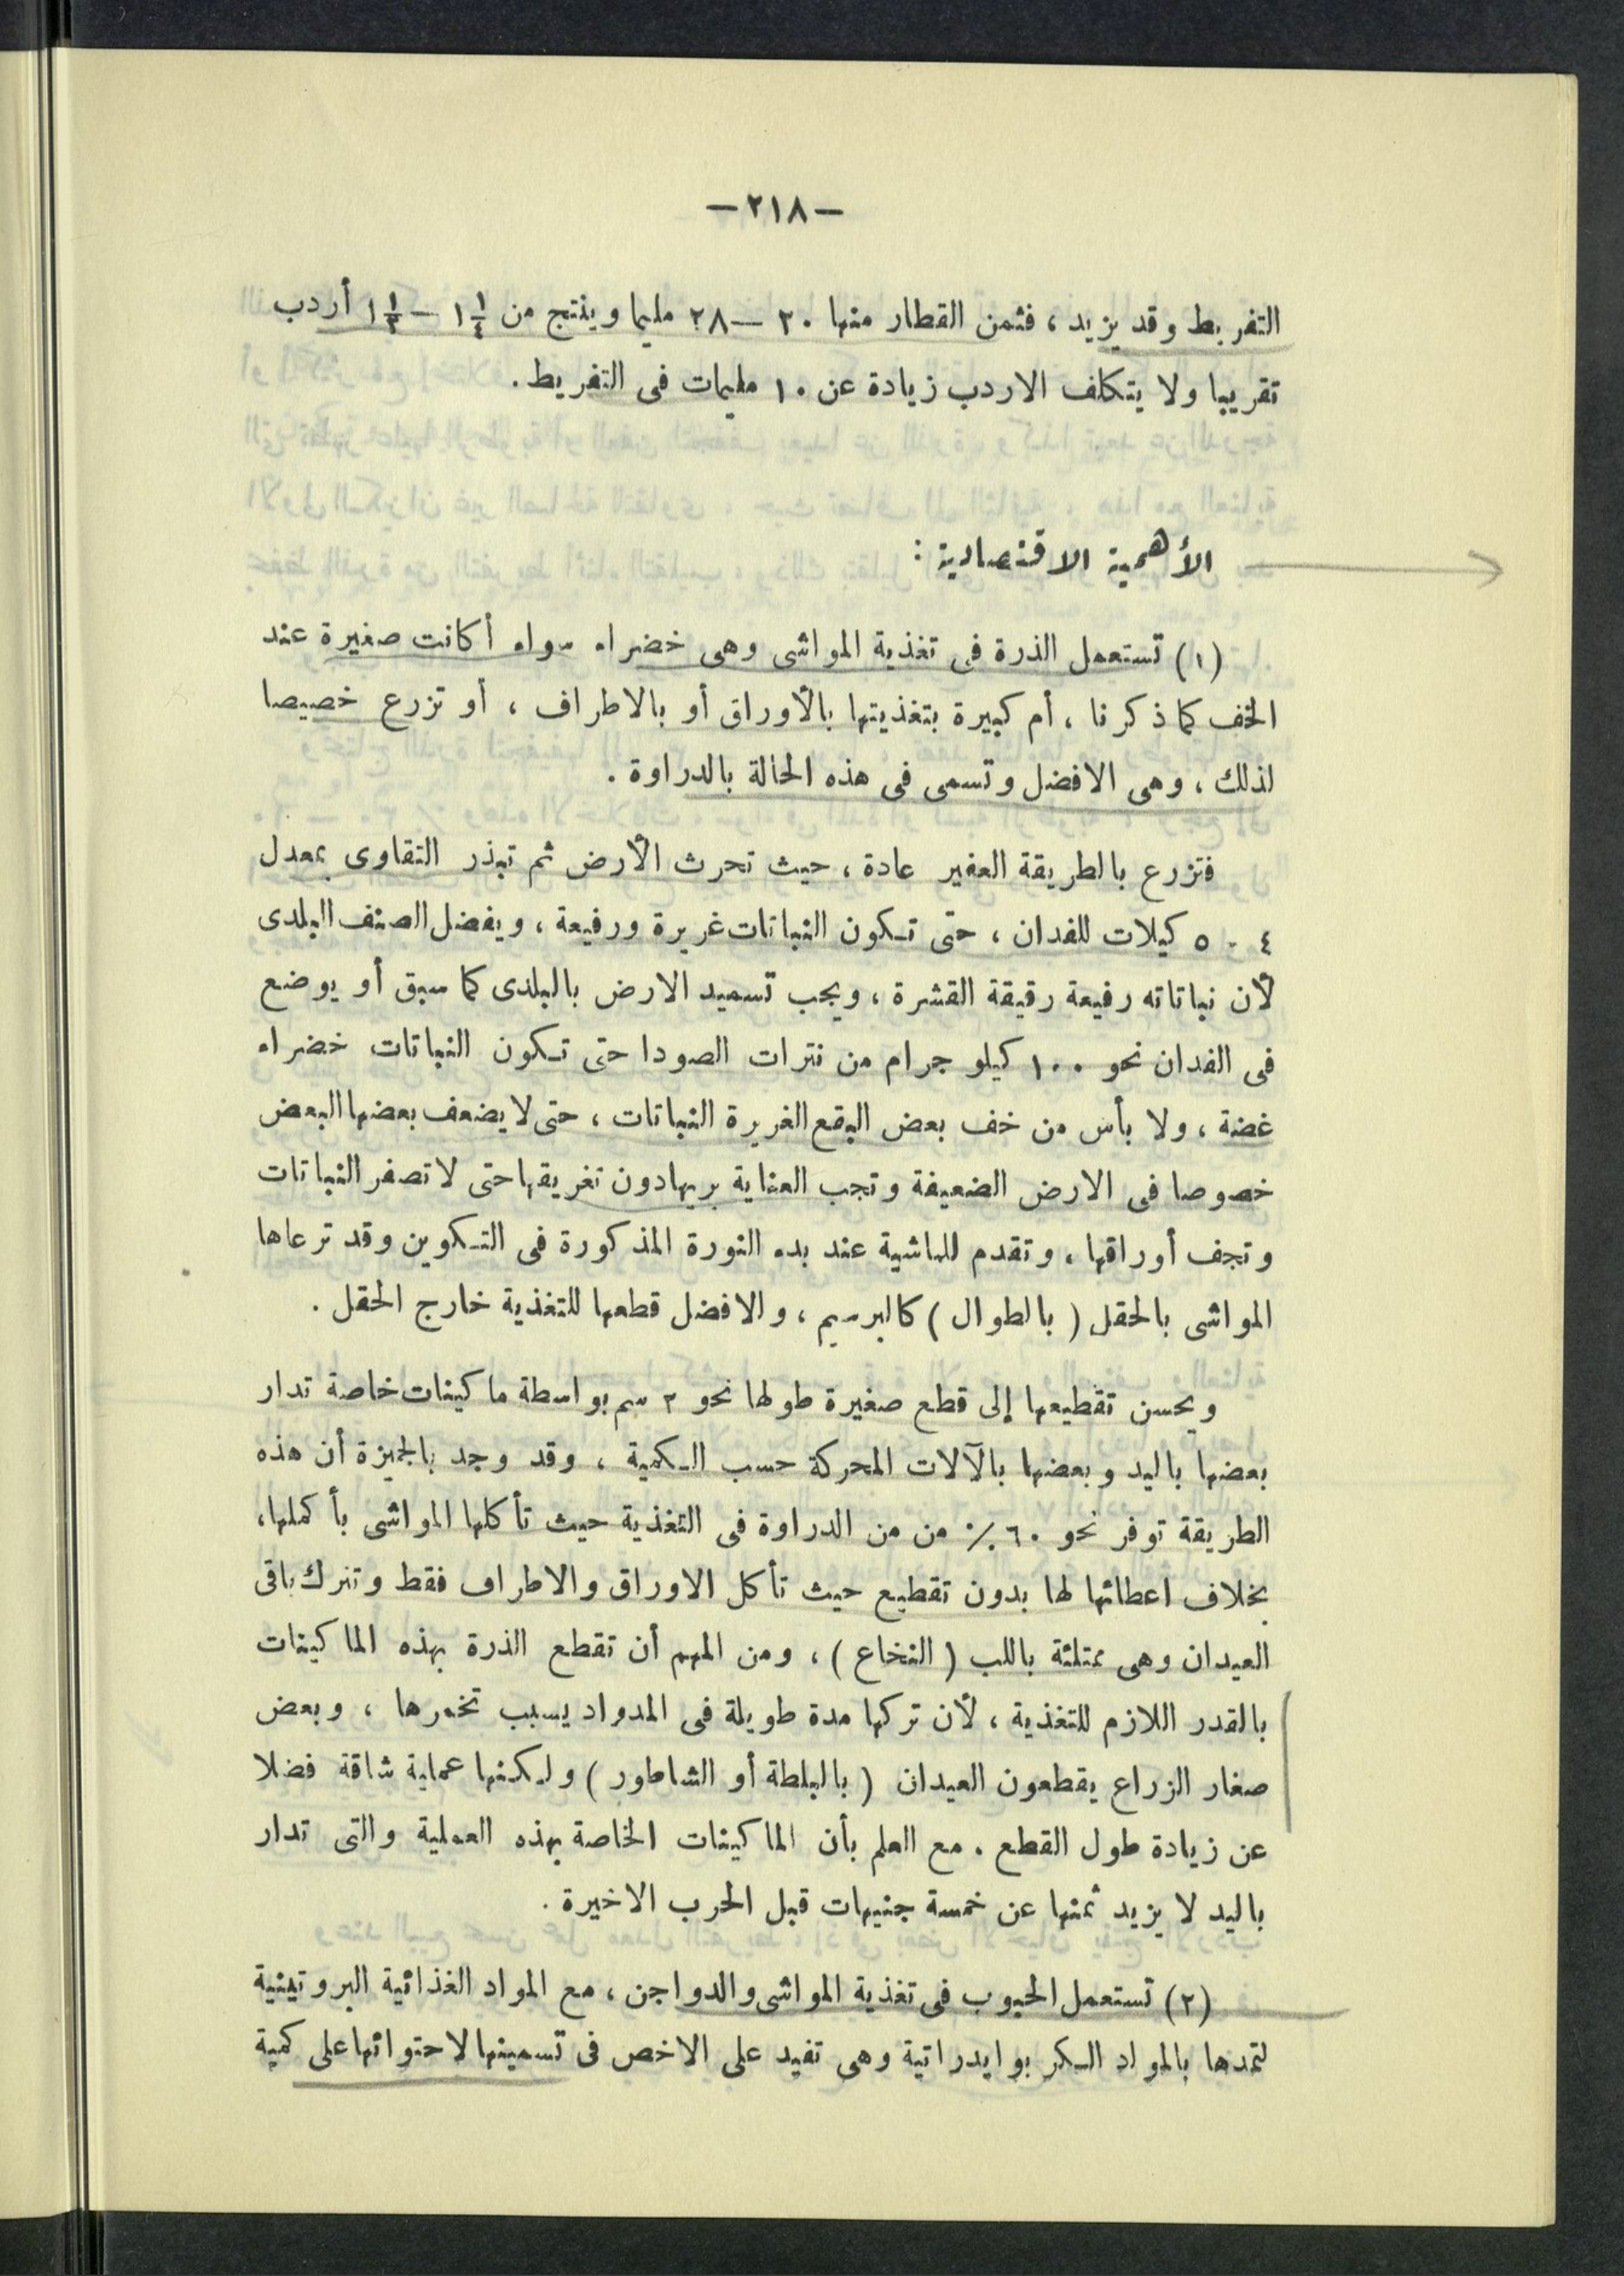 —٢١٨—
التفريط وقد يزيد ، فثمن القطار منها ٢٠ — ٢٨ مليما وينتج من ١¼ — ١½ أردب
تقريبا ولا يتكلف الاردب زيادة عن ١٠ مليمات فى التفريط .
الأهمية الاقتصادية :
(١) تستعمل الذرة فى تغذية المواشى وهى خضراء سواء أكانت صغيرة عند
الخف كما ذكرنا ، أم كبيرة بتغذيتها بالأوراق أو بالاطراف ، أو تزرع خصيصا
لذلك ، وهى الافضل وتسمى فى هذه الحالة بالدراوة .
فتزرع بالطريقة العفير عادة ، حيث تحرث الأرض ثم تبذر التقاوى بمعدل
٤ - ٥ كيلات للفدان ، حتى تكون النباتات غريرة ورفيعة ، ويفضل الصنف البلدى
لأن نباتاته رفيعة رقيقة القشرة ، ويجب تسميد الارض بالبلدى كما سبق أو يوضع
فى الفدان نحو ١٠٠ كيلو جرام من نترات الصودا حتى تكون النباتات خضراء
غضة ، ولا بأس من خف بعض البقع الغريرة النباتات ، حتى لا يضعف بعضها البعض
خصوصا فى الارض الضعيفة وتجب العناية بريها دون تغريقها حتى لا تصفر النباتات
وتجف أوراقها ، وتقدم للماشية عند بدء النورة المذكورة فى التكوين وقد ترعاها
المواشى بالحقل ( بالطوال ) كالبرسيم ، والافضل قطعها للتغذية خارج الحقل .
ويحسن تقطيعها إلى قطع صغيرة طولها نحو ٢ سم بواسطة ماكينات خاصة تدار
بعضها باليد وبعضها بالآلات المحركة حسب الكمية ، وقد وجد بالجيزة أن هذه
الطريقة توفر نحو ٦٠ ٪ من من الدراوة فى التغذية حيث تأكلها المواشى بأكملها ،
بخلاف اعطائها لها بدون تقطيع حيث تأكل الاوراق والاطراف فقط وتترك باقى
العيدان وهى ممتلئة باللب ( النخاع ) ، ومن المهم أن تقطع الذرة بهذه الماكينات
بالقدر اللازم للتغذية ، لأن تركها مدة طويلة فى المدواد يسبب تخمرها ، وبعض
صغار الزراع يقطعون العيدان ( بالبلطة أو الشاطور ) ولكنها عملية شاقة فضلا
عن زيادة طول القطع . مع العلم بأن الماكينات الخاصة بهذه العملية والتى تدار
باليد لا يزيد ثمنها عن خمسة جنيهات قبل الحرب الاخيرة .
(٢) تستعمل الحبوب فى تغذية المواشى والدواجن ، مع المواد الغذائية البروتينية
لتمدها بالمواد الكربوايدراتية وهى تفيد على الاخص فى تسمينها لاحتوائها على كمية